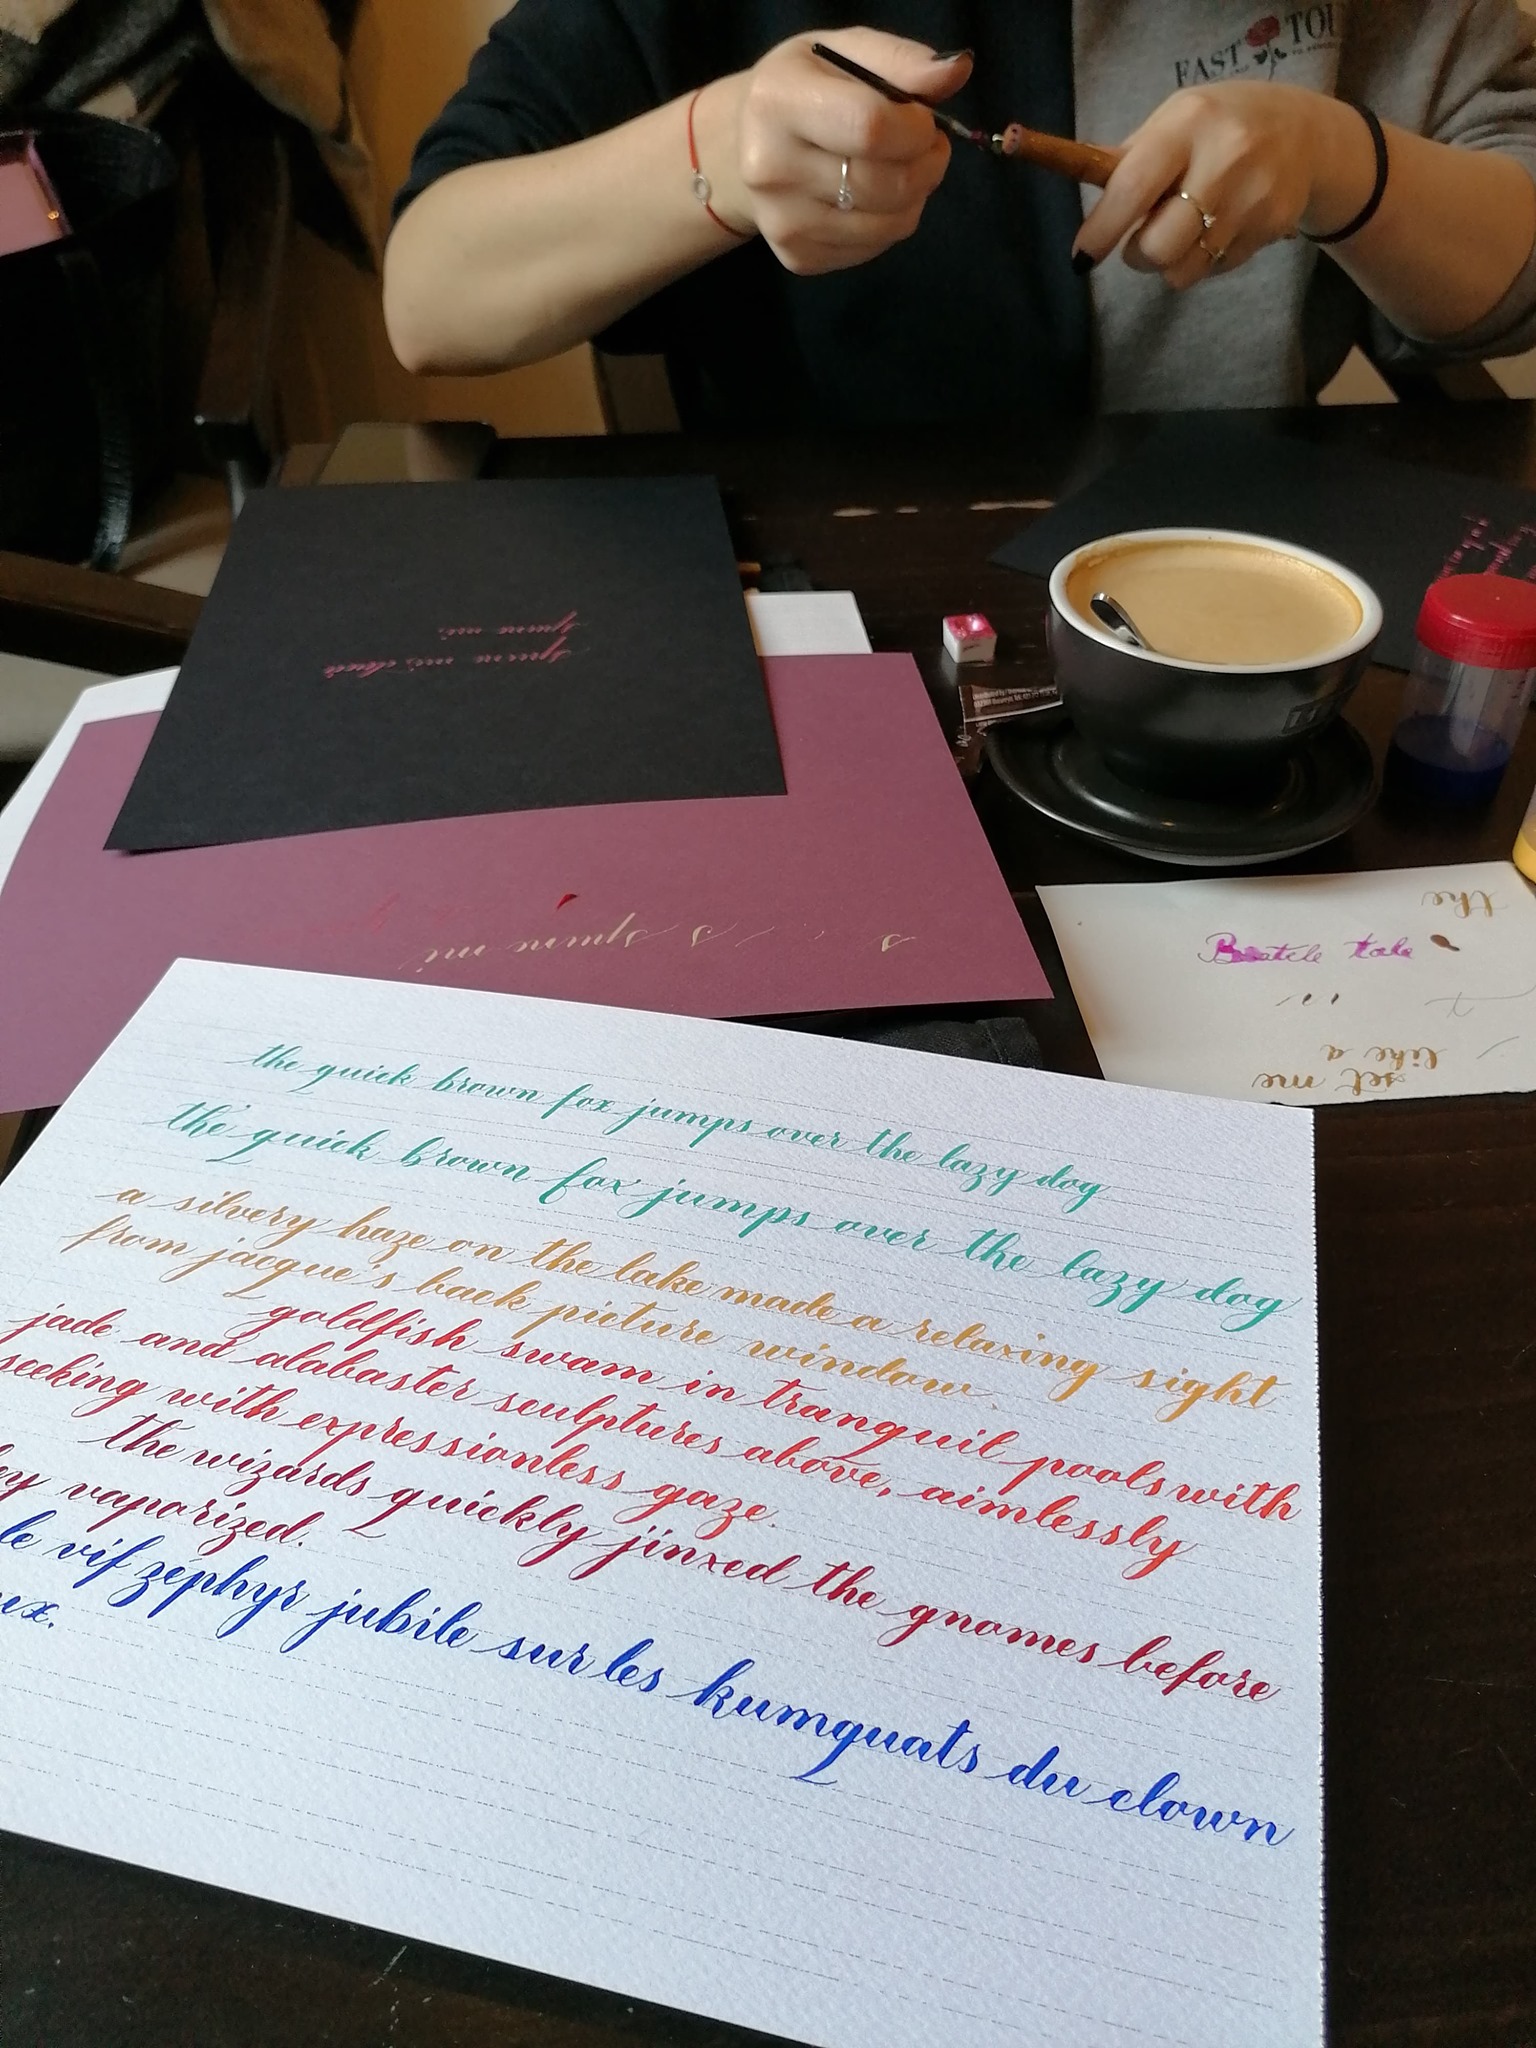 FAST TOU
spune mi
spune mi, dacă
spune mi
the
Beatele tale
like a
set me
the quick brown fox jumps over the lazy dog
the quick brown fox jumps over the lazy dog
a silvery haze on the lake made a relaxing sight
from jacque's back picture window.
goldfish swam in tranquil pools with
jade and alabaster sculptures above, aimlessly
seeking with expressionless gaze.
the wizards quickly jinxed the gnomes before
ey vaporized.
le vif zéphyr jubile sur les kumquats du clown
ux.